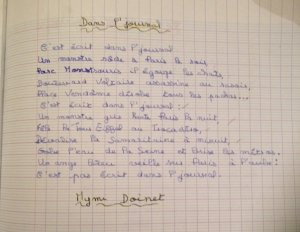 Dans l'journal
C'est écrit dans l'journal
Un monstre rôde à Paris le soir
Parc Montsouris il égorge les chats,
Boulevard Voltaire assassine au rasoir,
Place Vendôme dévore tous les pachas...
C'est écrit dans l'journal :
Un monstre gris hante Paris la nuit,
la Tour Eiffel au Trocadéro,
Dévalise la Samaritaine à minuit,
l'eau de la Seine et brise les métros.
Un ange blanc veille sur Paris à l'aube :
C'est pas écrit dans l'journal.
Mymi Doinet